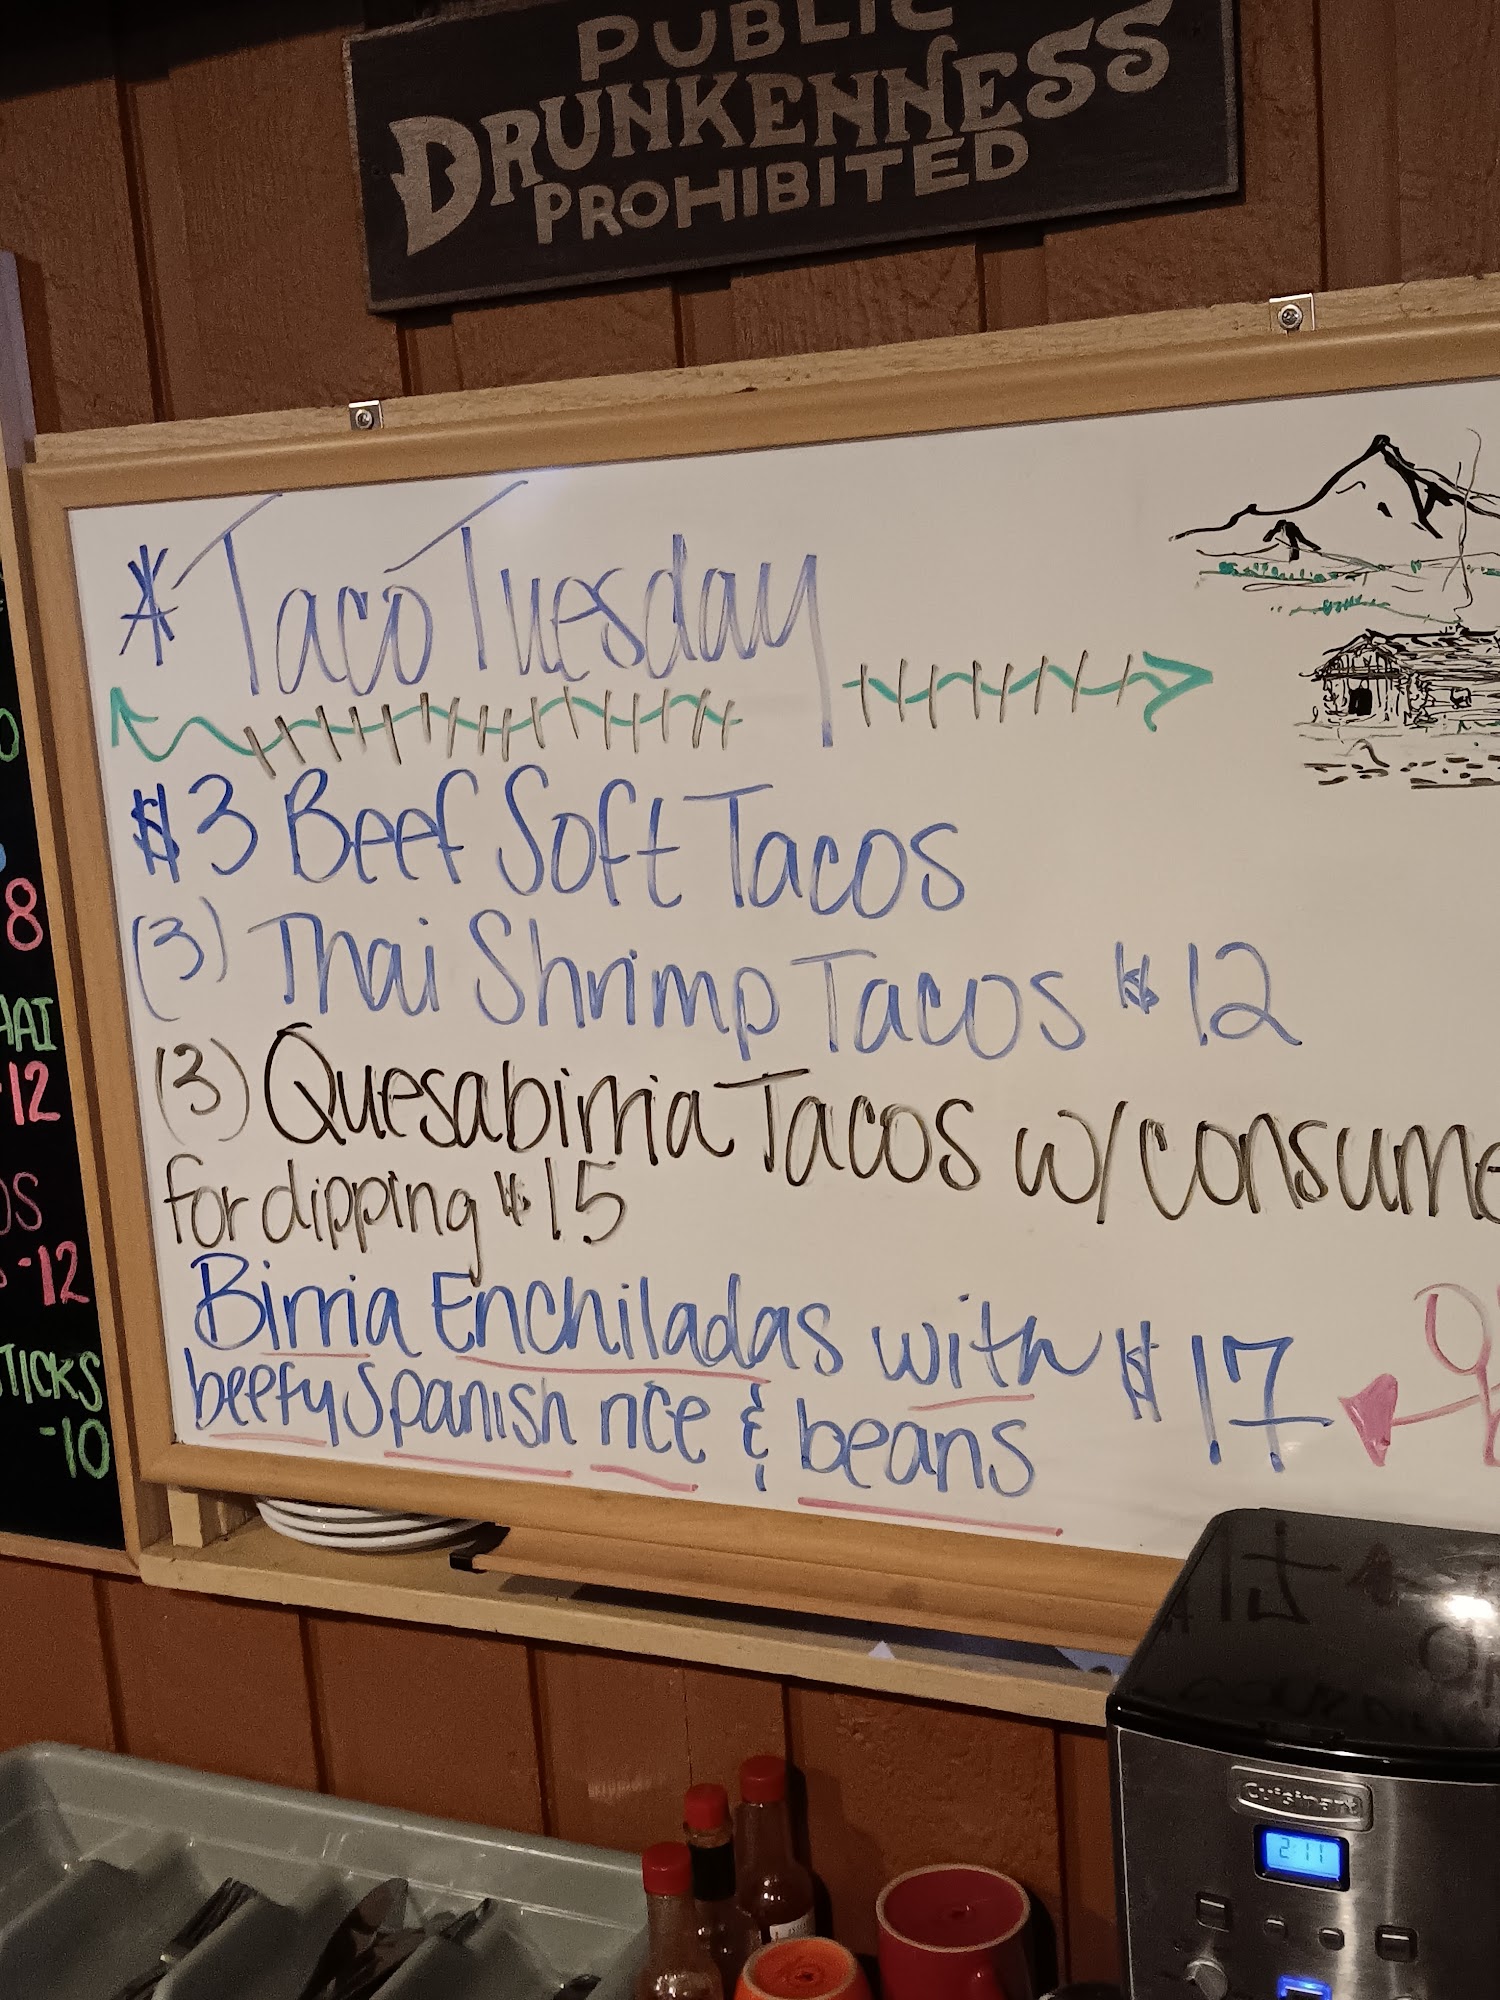 PUBLIC
DRUNKENNESS
PROHIBITED
* Taco Tuesday
$3 Beef Soft Tacos
(3) Thai Shrimp Tacos $12
(3) Quesabirria Tacos w/consume
for dipping $15
Birria Enchiladas with $17
beefy Spanish rice & beans
8
12
OS
-12
TICKS
-10
Cuisinart
2:11